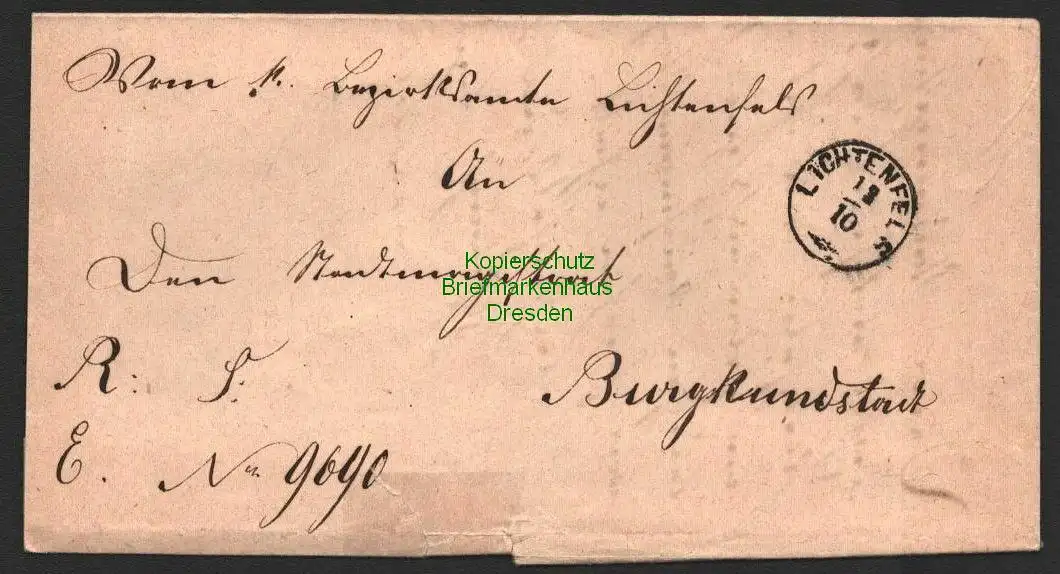 Vom k. Bezirksamte Lichtenfels
An
LICHTENFELS
12
10
Den Stadtmagistrat
Kopierschutz
Briefmarkenhaus
Dresden
R. S.
Burgkundstadt
E. No 9690